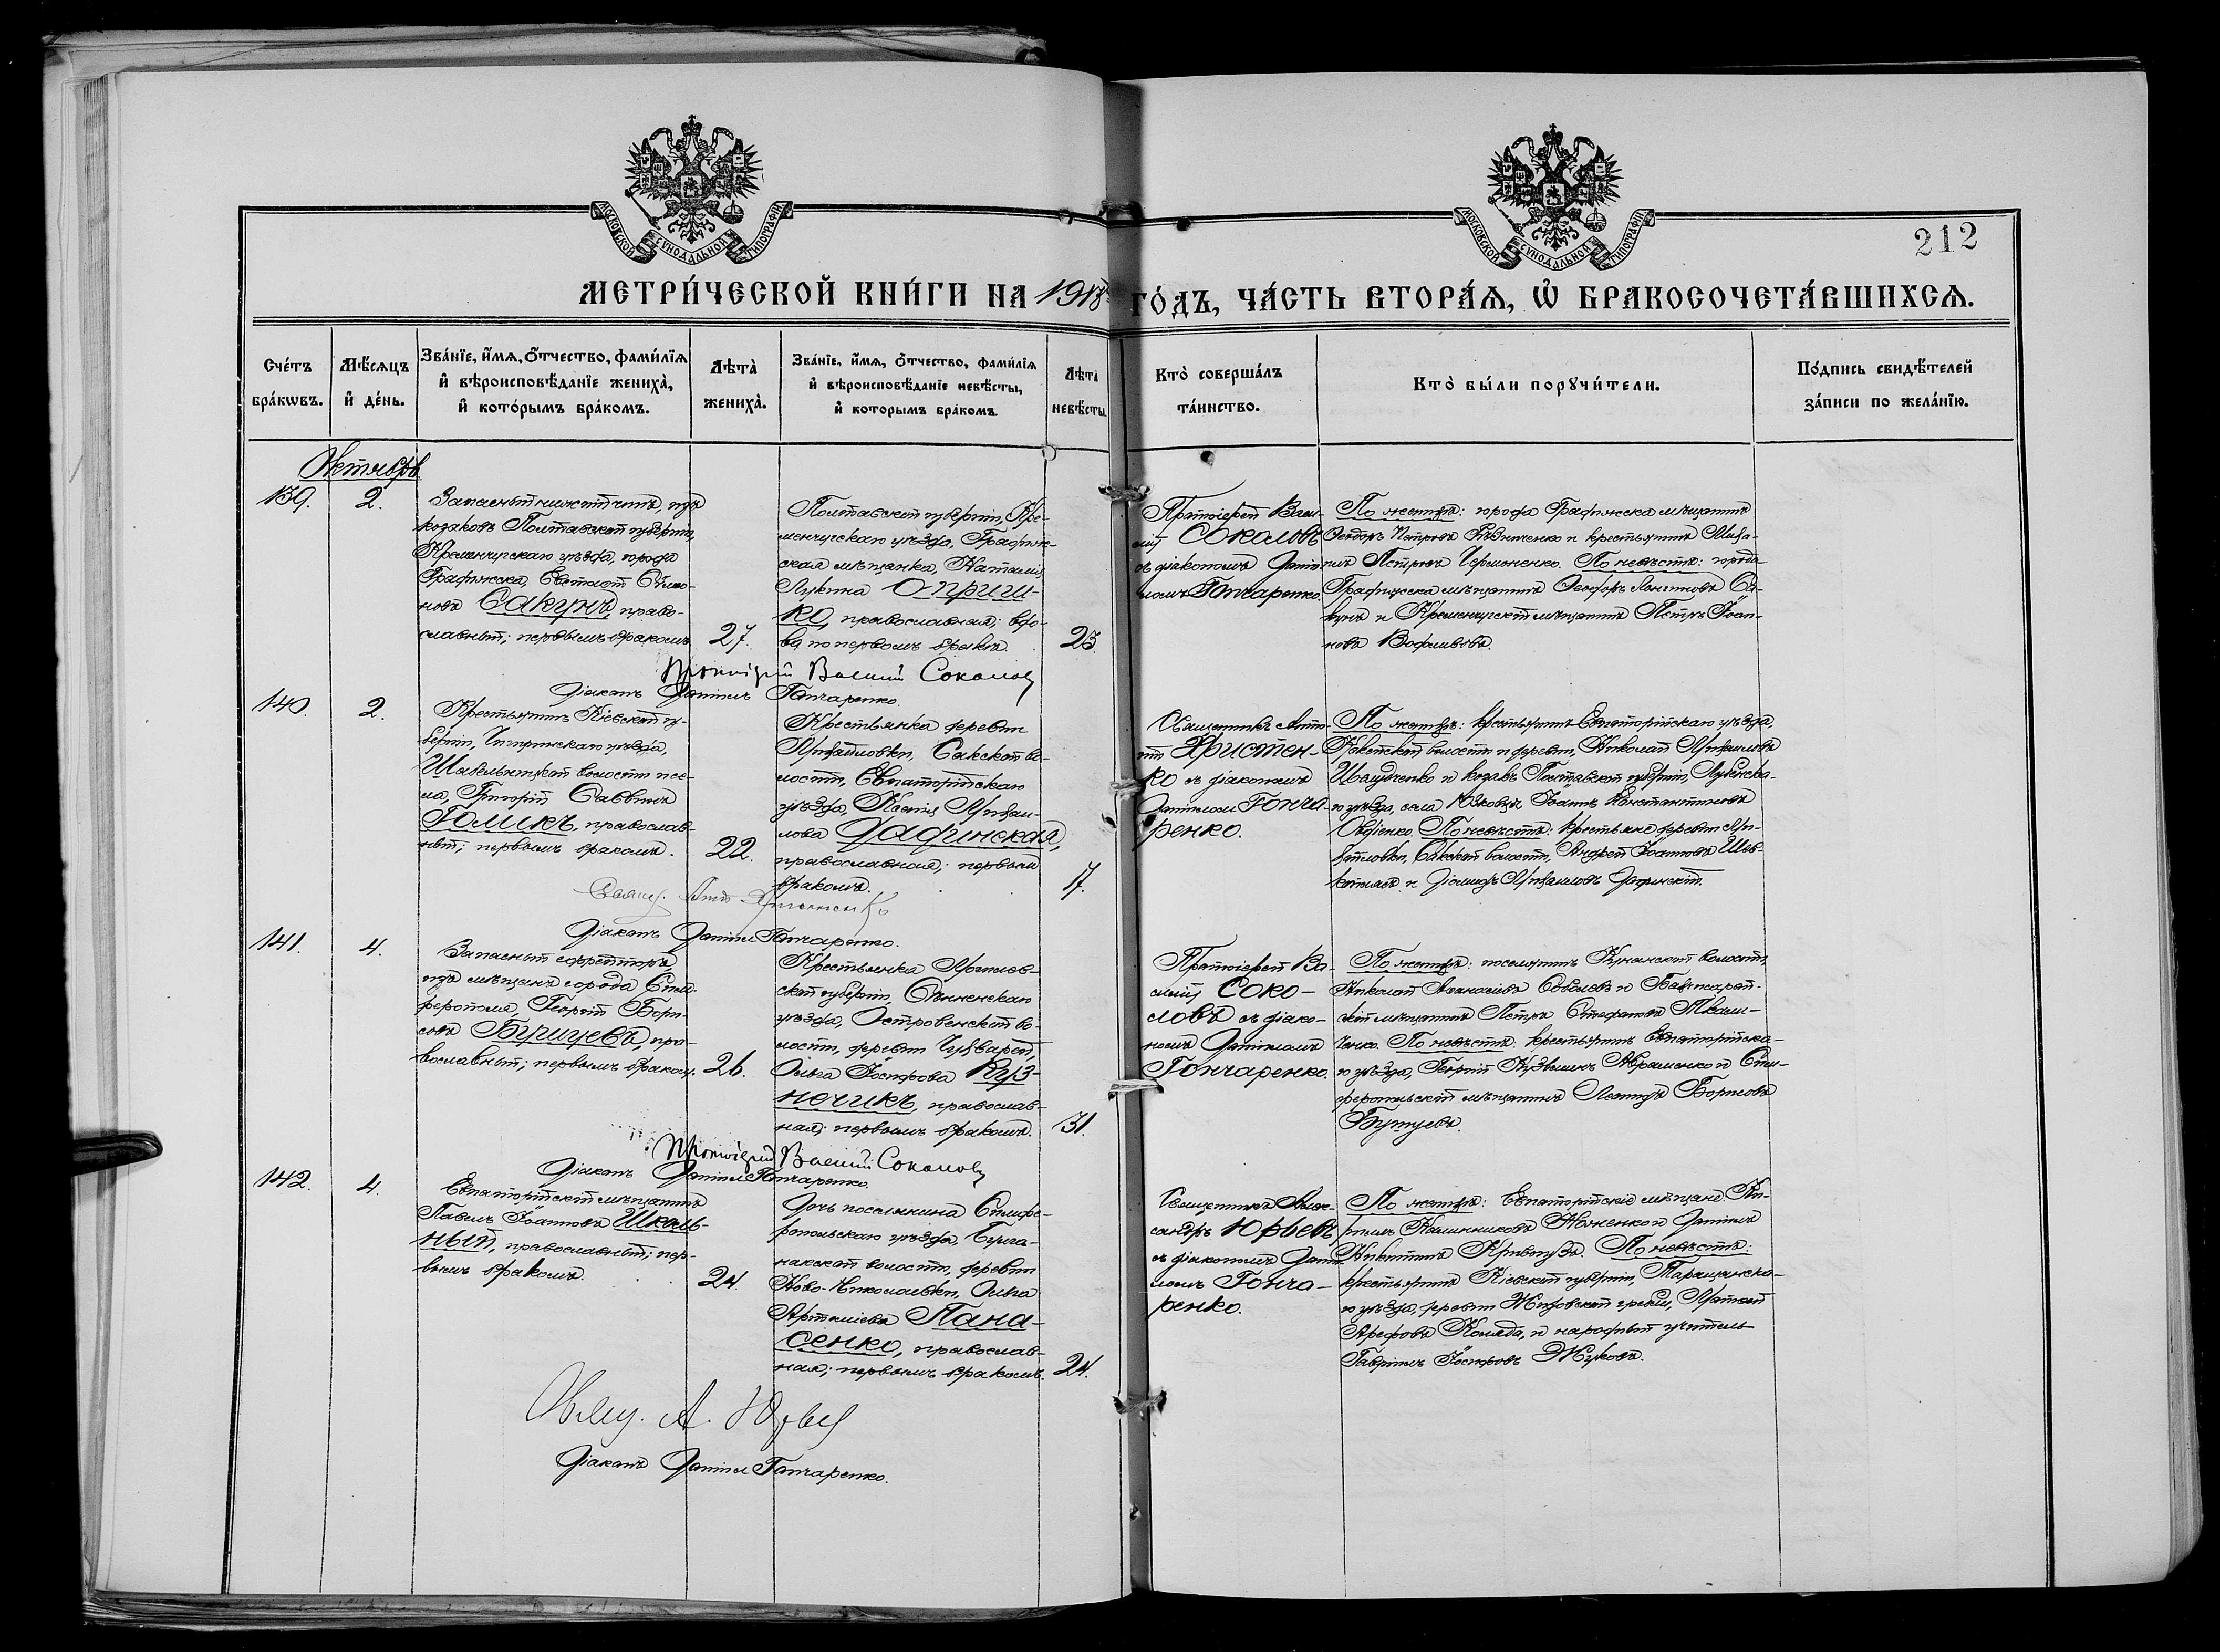 МОСКОВСКОЙ СѴНОДАЛЬНОЙ ТИПОГРАФІИ
МОСКОВСКОЙ СѴНОДАЛЬНОЙ ТИПОГРАФІИ
212
МЕТРИ́ЧЕСКОЙ КНИ́ГИ НА 1918
ГО́ДЪ, ЧА́СТЬ ВТОРА́Я, Ѡ҆ БРАКОСОЧЕТА́ВШИХСЯ.
Сче́тъ бра́кѡвъ.
Мѣ́сяцъ и҆ де́нь.
Зва́нїе, и҆́мя, ѻ҆́тчество, фами́лїя
и҆ вѣроисповѣ́данїе жениха̀,
и҆ кото́рымъ бра́комъ.
Лѣта̀ жениха̀.
Зва́нїе, и҆́мя, ѻ҆́тчество, фами́лїя
и҆ вѣроисповѣ́данїе невѣ́сты,
и҆ которымъ бра́комъ.
Лѣта̀ невѣ́сты.
Кто̀ соверша́лъ
та́инство.
Кто̀ бы́ли порꙋчи́тели.
По́дпись свидѣ́телей
за́писи по жела́нїю.
Октябрь
139.
2.
Запасный изъ
козаковъ Полтавской губерніи,
Кременчугскаго уѣзда, города
Градижска, Евстаѳій Симо-
новъ Сакунъ, право-
славный; первымъ бракомъ.
27.
Полтавской губерніи, Кре-
менчугскаго уѣзда, Градиж-
ская мѣщанка, Наталія
Лукина Опришко,
православная; вдо-
ва по первомъ бракѣ.
23.
Протоіерей Васи-
лій Соколовъ
съ діакономъ Дані-
иломъ Гончаренко.
По женихѣ: города Градижска мѣщанинъ
Ѳеодоръ Петровъ и крестьянинъ Миха-
илъ Петровъ Чермоненко. По невѣстѣ: города
Градижска мѣщанинъ Ѳеодоръ Са-
кунъ и Кременчугскій мѣщанинъ Петръ Іоан-
новъ
Протоіерей Василій Соколовъ
Діаконъ Даніилъ Гончаренко.
140.
2.
Крестьянинъ Кіевской гу-
берніи, Чигиринскаго уѣзда,
Шабельницкой волости и се-
ла, Григорій Саввинъ
Гомикъ, православ-
ный; первымъ бракомъ.
22.
Крестьянка деревни
Михайловки, Сакской во-
лости, Евпаторійскаго
уѣзда, Ксенія Михаи-
лова Дафинская,
православная; первымъ
бракомъ.
17.
Священникъ Анто-
ній Христен-
ко съ діакономъ
Даніиломъ Гонча-
ренко.
По женихѣ: крестьянинъ Евпаторійскаго уѣзда,
волости и деревни, Николай Михаиловъ
и козакъ Полтавской губерніи, Лубенска-
го уѣзда, села Іоаннъ Константиновъ
Овдіенко. По невѣстѣ: крестьяне деревни Ми-
хайловки, Сакской волости, Андрей Іоанновъ
и Михаиловъ Дафинскій.
Священ. Ант. Христенко
Діаконъ Даніилъ Гончаренко.
141.
4.
Запасный ефрейторъ
изъ мѣщанъ города Сим-
ферополя, Георгій Бори-
совъ Бутуевъ, пра-
вославный; первымъ браком.
26.
Крестьянка Могилев-
ской губерніи, Сѣнненскаго
уѣзда, Островенской во-
лости, деревни
Ольга Іосифова Куз-
нечикъ, православ-
ная; первымъ бракомъ.
31.
Протоіерей Ва-
силій Соко-
ловъ съ діако-
номъ Даніиломъ
Гончаренко.
По женихѣ: поселянинъ волости,
Николай Аѳанасіевъ Соболевъ и
мѣщанинъ Петръ Стефановъ
По невѣстѣ: крестьянинъ Евпаторійска-
го уѣзда, Георгій Авраменко и Сим-
феропольскій мѣщанинъ Леонидъ Борисовъ
Бутуевъ.
Протоіерей Василій Соколовъ
Діаконъ Даніилъ Гончаренко.
142.
4.
Евпаторійскій мѣщанинъ
Павелъ Іоанновъ Школь-
ный, православный; пер-
вымъ бракомъ.
24.
Дочь поселянина Симфе-
ропольскаго уѣзда, Булга-
накской волости, деревни
Ново-Николаевки, Ольга
Артеміева Пана-
сенко, православ-
ная; первымъ бракомъ.
24.
Священникъ Алек-
сандръ Юрьевъ
съ діакономъ Дані-
иломъ Гонча-
ренко.
По женихѣ: Евпаторійскіе мѣщане: Ки-
риллъ и Даніилъ
Никитинъ По невѣстѣ:
крестьянинъ Кіевской губерніи, Таращанска-
го уѣзда, деревни Жидовской Матѳей
Арефовъ Коляда, и народный учитель
Гавріилъ Іосифовъ Жуковъ.
Свящ. А. Юрьев
Діаконъ Даніилъ Гончаренко.